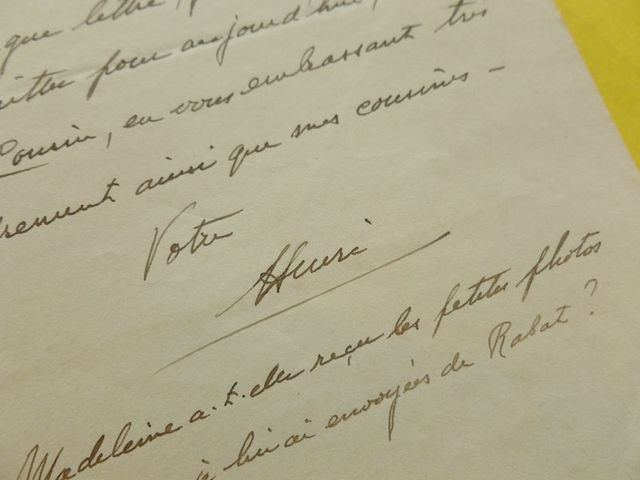 que lettre,
pour aujourd'hui,
Cousin, en vous embrassant très
ainsi que mes cousines -
Votre
Henri
Madeleine a-t-elle reçu les petites photos
je lui ai envoyées de Rabat ?